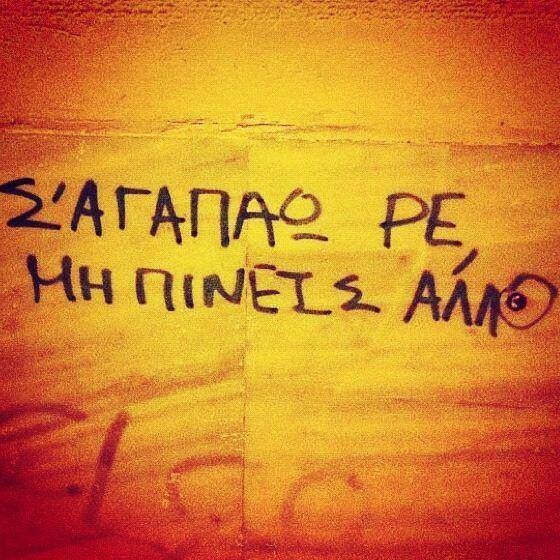 Σ'ΑΓΑΠΑΩ ΡΕ
ΜΗ ΠΙΝΕΙΣ ΆΛΛΟ